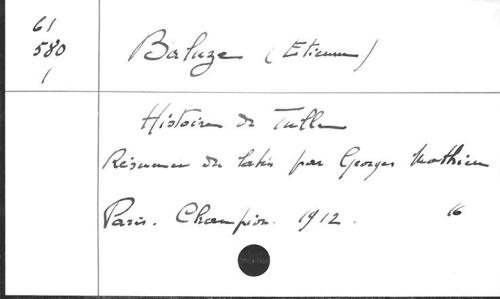 61
580
1
Baluze (Etienne)
Histoire de Tulle
Résumée du latin par Georges Mathieu
Paris. Champion. 1912. 16